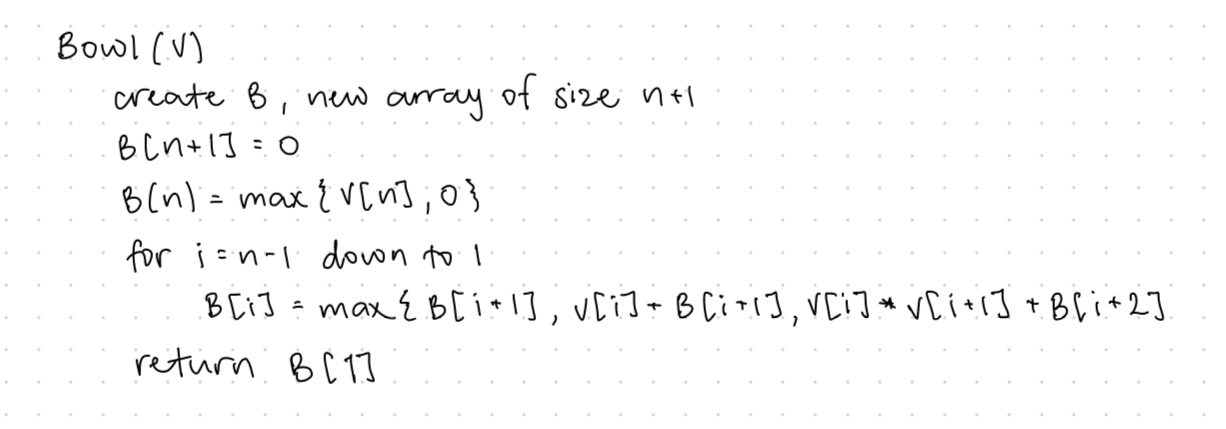 Bowl (V)
create B, new array of size n+1
B[n+1] = 0
B(n) = max { V[n], 0 }
for i = n-1 down to 1
B[i] = max { B[i+1], V[i] + B[i+1], V[i] * V[i+1] + B[i+2]
return B[1]